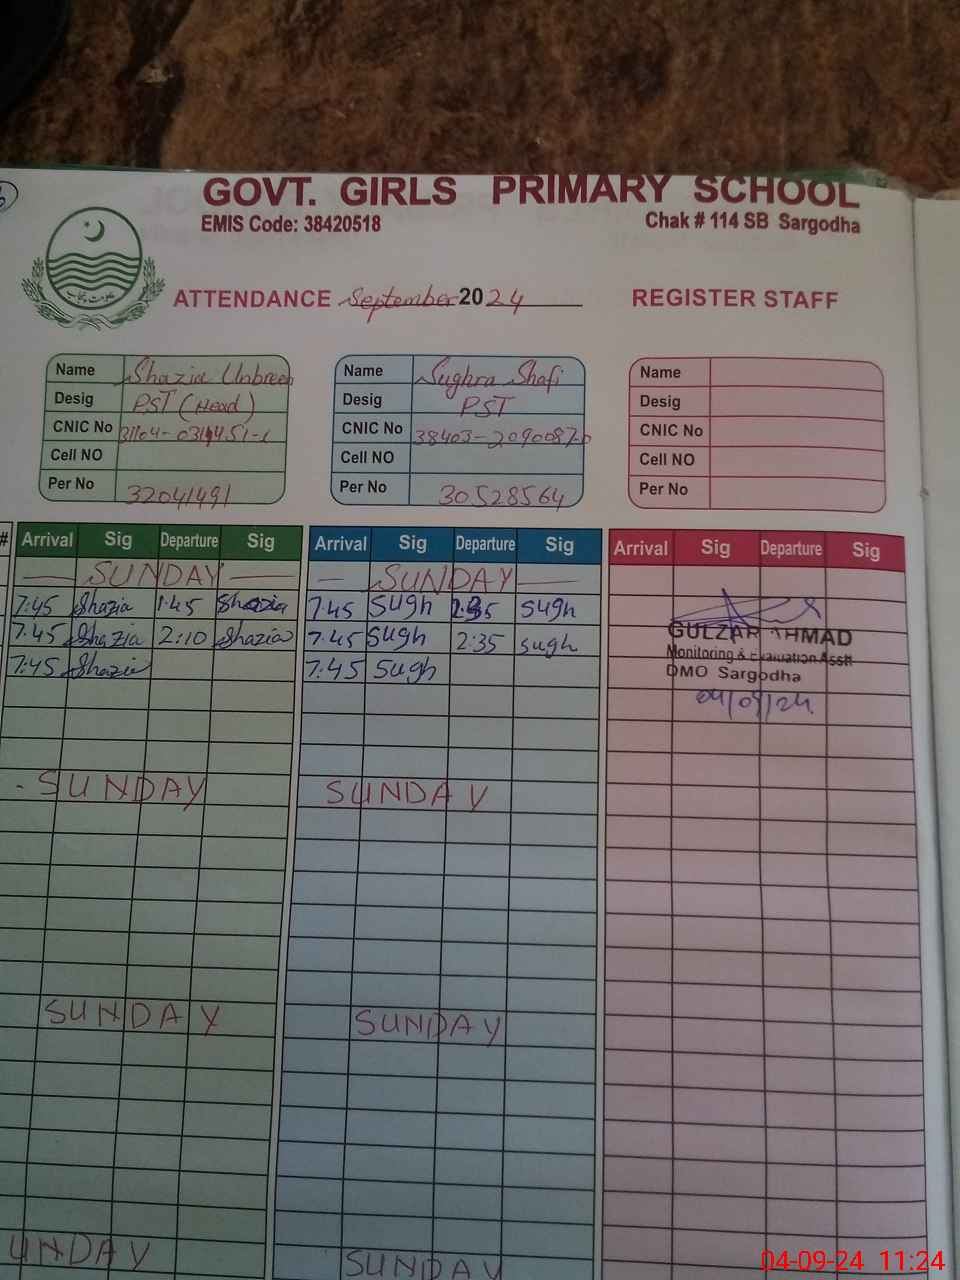 GOVT. GIRLS PRIMARY SCHOOL
EMIS Code: 38420518 Chak # 114 SB Sargodha
حکومت پنجاب
ATTENDANCE September 2024 REGISTER STAFF
Name Shazia Unbreen
Desig PST (Head)
CNIC No
Cell NO
Per No 32041491
Name Sughra Shafi
Desig PST
CNIC No
Cell NO
Per No 30528564
Name
Desig
CNIC No
Cell NO
Per No
# Arrival Sig Departure Sig Arrival Sig Departure Sig Arrival Sig Departure Sig
SUNDAY SUNDAY
7:45 Shazia 1:45 Shazia 7:45 Sugh Sugh
7:45 Shazia 2:10 Shazia 7:45 Sugh 2:35 Sugh
7:45 Shazia 7:45 Sugh
GULZAR AHMAD
Monitoring & Evaluation Asstt
DMO Sargodha
04/09/24
SUNDAY SUNDAY
SUNDAY SUNDAY
UNDAY SUNDAY
04-09-24 11:24